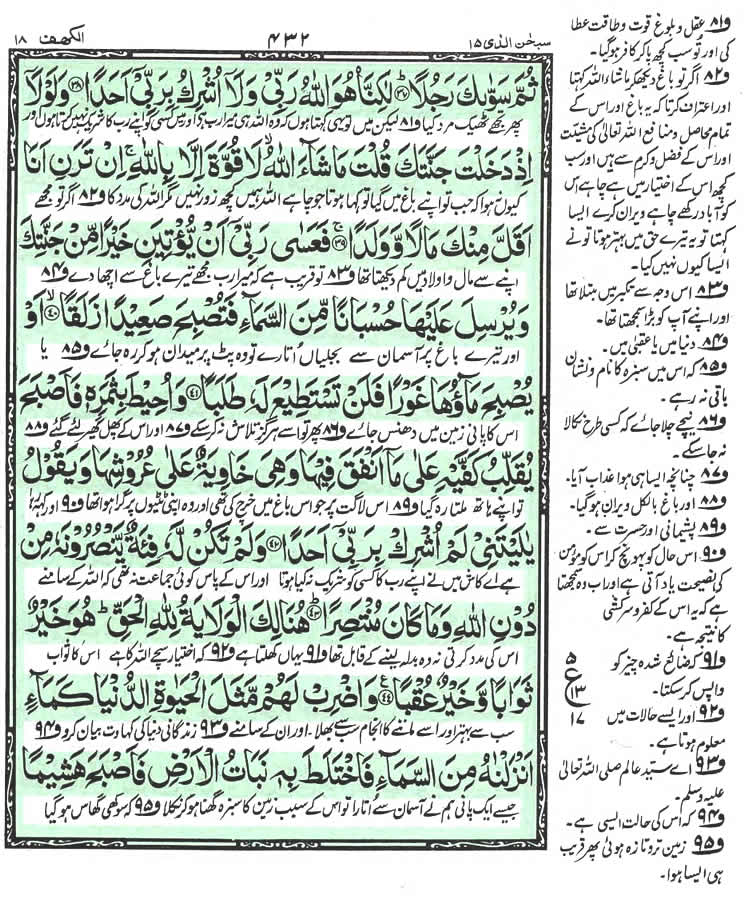 سبحٰن الذی ۱۵
۴۳۲
الکھف ۱۸
ثُمَّ سَوّٰىكَ رَجُلًا ﴿۳۷﴾ لٰكِنَّا۠ هُوَ اللّٰهُ رَبِّیْ وَ لَاۤ اُشْرِكُ بِرَبِّیْۤ اَحَدًا ﴿۳۸﴾ وَ لَوْلَاۤ
پھر تجھے ٹھیک مرد کیا و۸۱ لیکن میں تو یہی کہتا ہوں کہ وہ اللہ ہی میرا رب ہے اور میں کسی کو اپنے رب کا شریک نہیں کرتا ہوں اور
اِذْ دَخَلْتَ جَنَّتَكَ قُلْتَ مَا شَآءَ اللّٰهُ ۙ لَا قُوَّةَ اِلَّا بِاللّٰهِ ۚ اِنْ تَرَنِ اَنَا
کیوں نہ ہوا کہ جب تو اپنے باغ میں گیا تو کہا ہوتا جو چاہے اللہ ہمیں کچھ زور نہیں مگر اللہ کی مدد کا و۸۲ اگر تو مجھے
اَقَلَّ مِنْكَ مَالًا وَّ وَلَدًا ﴿۳۹﴾ ۚ فَعَسٰى رَبِّیْۤ اَنْ یُّؤْتِیَنِ خَیْرًا مِّنْ جَنَّتِكَ
اپنے سے مال و اولاد میں کم دیکھتا تھا و۸۳ تو قریب ہے کہ میرا رب مجھے تیرے باغ سے اچھا دے و۸۴
وَ یُرْسِلَ عَلَیْهَا حُسْبَانًا مِّنَ السَّمَآءِ فَتُصْبِحَ صَعِیْدًا زَلَقًا ﴿۴۰﴾ ۙ اَوْ
اور تیرے باغ پر آسمان سے بجلیاں اُتارے تو وہ پٹ پر میدان ہو کر رہ جائے و۸۵ یا
یُصْبِحَ مَآؤُهَا غَوْرًا فَلَنْ تَسْتَطِیْعَ لَهٗ طَلَبًا ﴿۴۱﴾ وَ اُحِیْطَ بِثَمَرِهٖ فَاَصْبَحَ
اس کا پانی زمین میں دھنس جائے و۸۶ پھر تو اسے ہرگز تلاش نہ کر سکے و۸۷ اور اس کے پھل گھیر لئے گئے و۸۸
یُقَلِّبُ كَفَّیْهِ عَلٰى مَاۤ اَنْفَقَ فِیْهَا وَ هِیَ خَاوِیَةٌ عَلٰى عُرُوْشِهَا وَ یَقُوْلُ
تو اپنے ہاتھ ملتا رہ گیا و۸۹ اس لاگت پر جو اس باغ میں خرچ کی تھی اور وہ اپنی ٹٹیوں پر گرا ہوا تھا و۹۰ اور کہہ رہا
یٰلَیْتَنِیْ لَمْ اُشْرِكْ بِرَبِّیْۤ اَحَدًا ﴿۴۲﴾ وَ لَمْ تَكُنْ لَّهٗ فِئَةٌ یَّنْصُرُوْنَهٗ مِنْ
ہے اے کاش میں نے اپنے رب کا کسی کو شریک نہ کیا ہوتا اور اس کے پاس کوئی جماعت نہ تھی کہ اللہ کے سامنے
دُوْنِ اللّٰهِ وَ مَا كَانَ مُنْتَصِرًا ﴿۴۳﴾ هُنَالِكَ الْوَلَایَةُ لِلّٰهِ الْحَقِّ ؕ هُوَ خَیْرٌ
اس کی مدد کرتی نہ وہ بدلہ لینے کے قابل تھا و۹۱ یہاں کھلتا ہے و۹۲ کہ اختیار سچے اللہ کا ہے اس کا ثواب
ثَوَابًا وَّ خَیْرٌ عُقْبًا ﴿۴۴﴾ وَ اضْرِبْ لَهُمْ مَّثَلَ الْحَیٰوةِ الدُّنْیَا كَمَآءٍ
سب سے بہتر اور اسے ماننے کا انجام سب سے بھلا۔ اور ان کے سامنے و۹۳ زندگانی دنیا کی کہاوت بیان کرو و۹۴
اَنْزَلْنٰهُ مِنَ السَّمَآءِ فَاخْتَلَطَ بِهٖ نَبَاتُ الْاَرْضِ فَاَصْبَحَ هَشِیْمًا
جیسے ایک پانی ہم نے آسمان سے اُتارا تو اس کے سبب زمین کا سبزہ گھنا ہو کر نکلا و۹۵ کہ سوکھی گھاس ہو گیا
و۸۱ عقل و بلوغ قوت و طاقت عطا
کی اور تو سب کچھ پا کر کافر ہو گیا۔
و۸۲ اگر تو باغ دیکھ کر ماشاء اللہ کہتا
اور اعتراف کرتا کہ یہ باغ اور اس کے
تمام محاصل و منافع اللہ تعالٰی کی مشیّت
اور اس کے فضل و کرم سے ہیں اور سب
کچھ اس کے اختیار میں ہے چاہے اس
کو آباد رکھے چاہے ویران کرے ایسا
کہتا تو یہ تیرے حق میں بہتر ہوتا تو نے
ایسا کیوں نہیں کیا۔
و۸۳ اس وجہ سے تکبر میں مبتلا تھا
اور اپنے آپ کو بڑا سمجھتا تھا۔
و۸۴ دنیا میں یا عقبیٰ میں۔
و۸۵ کہ اس میں سبزہ کا نام و نشان
باقی نہ رہے۔
و۸۶ نیچے چلا جائے کہ کسی طرح نکالا
نہ جا سکے۔
و۸۷ چنانچہ ایسا ہی ہوا عذاب آیا۔
و۸۸ اور باغ بالکل ویران ہو گیا۔
و۸۹ پشیمانی اور حسرت سے۔
و۹۰ اس حال کو پہونچ کر اس کو مومن
کی نصیحت یاد آتی ہے اور اب وہ سمجھتا
ہے کہ یہ اس کے کفر و سرکشی
کا نتیجہ ہے۔
و۹۱ کہ ضائع شدہ چیز کو
واپس کر سکتا۔
۵
ع
۱۳
۱۷
و۹۲ اور ایسے حالات میں
معلوم ہوتا ہے۔
و۹۳ اے سیّدِ عالم صلی اللہ تعالٰی
علیہ وسلم۔
و۹۴ کہ اُس کی حالت ایسی ہے۔
و۹۵ زمین تر و تازہ ہوئی پھر قریب
ہی ایسا ہوا۔